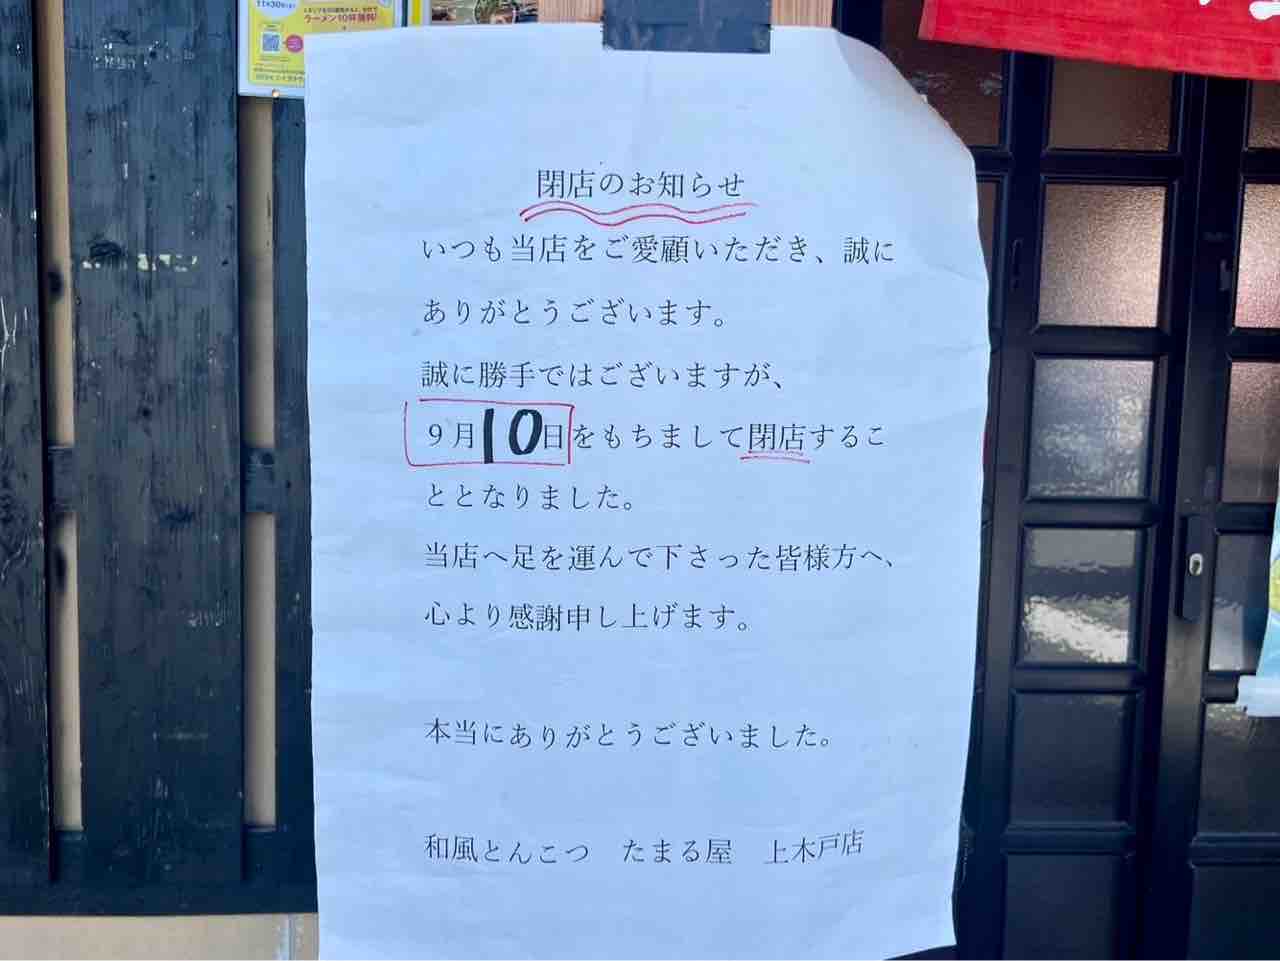 11月30日
ラーメン10杯無料!
閉店のお知らせ
いつも当店をご愛顧いただき、誠に
ありがとうございます。
誠に勝手ではございますが、
9月10日をもちまして閉店するこ
ととなりました。
当店へ足を運んで下さった皆様方へ、
心より感謝申し上げます。
本当にありがとうございました。
和風とんこつ　たまる屋　上木戸店